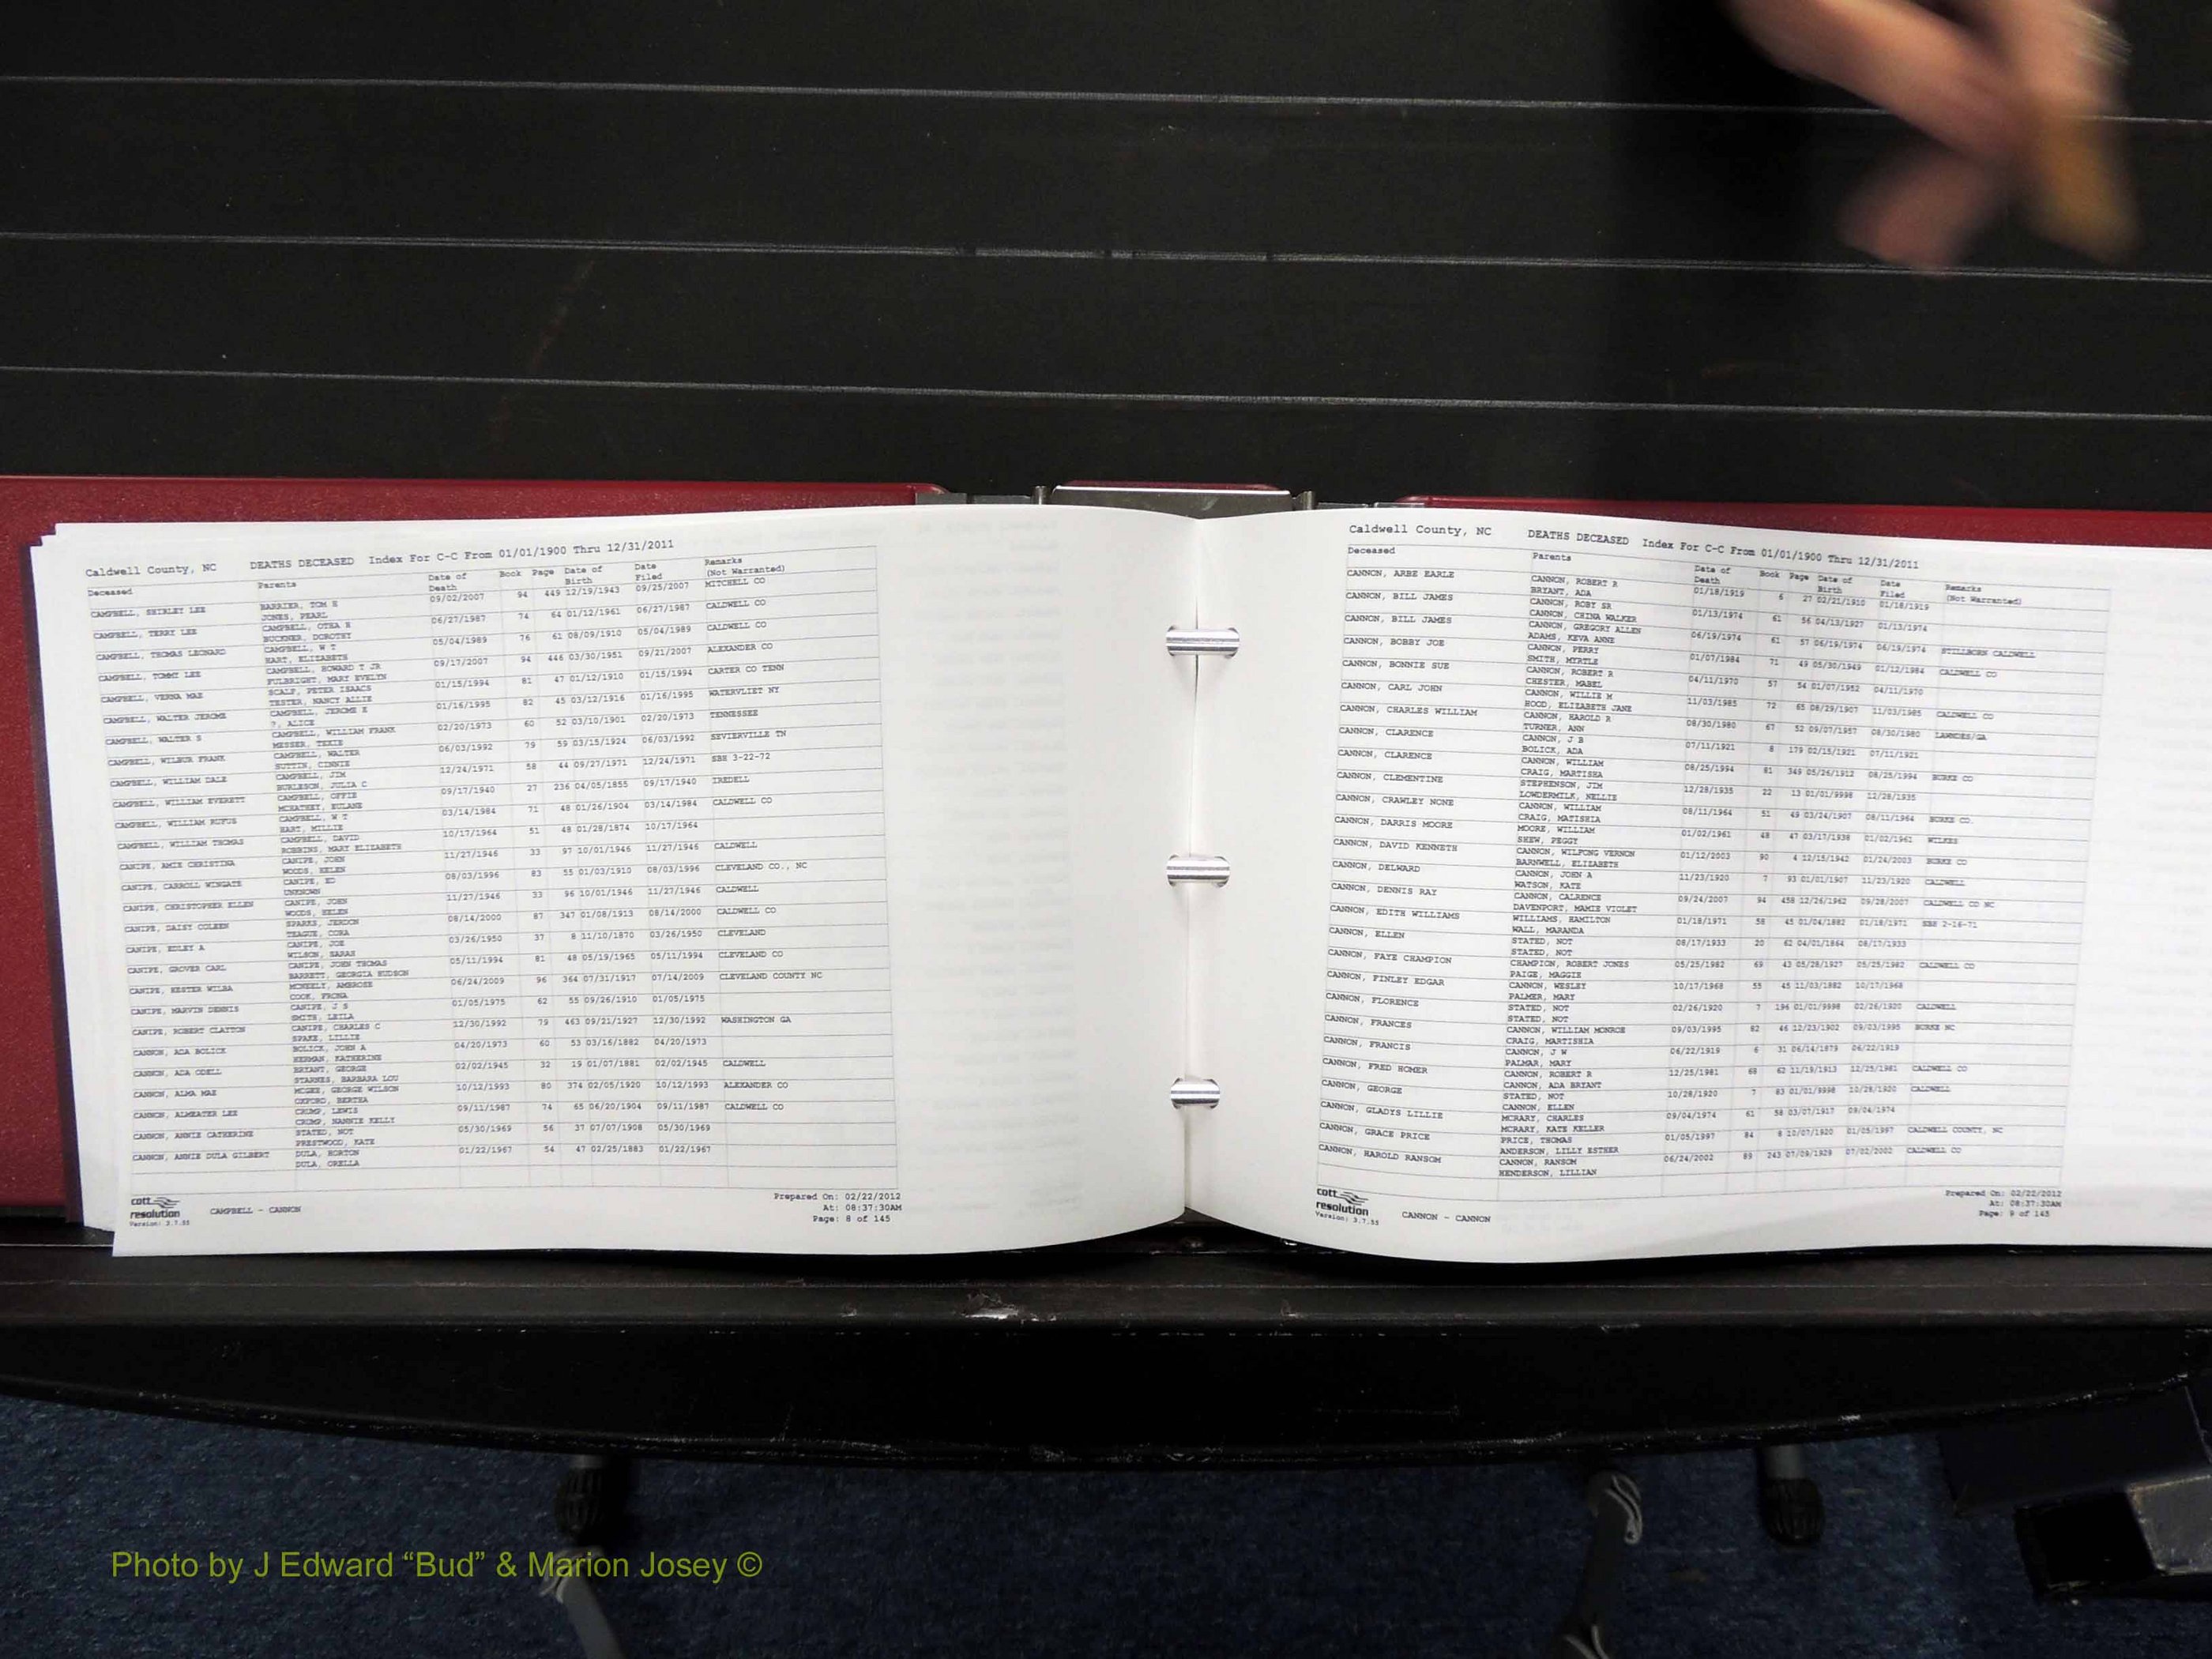 Caldwell County, NC DEATHS DECEASED Index For C-C From 01/01/1900 Thru 12/31/2011
Deceased Parents Date of Death Book Page Date of Birth Date Filed Remarks (Not Warranted)
CAMPBELL, SHIRLEY LEE BARRIER, TOM H 09/02/2007 94 449 12/19/1943 09/25/2007 MITCHELL CO
JONES, PEARL
CAMPBELL, TERRY LEE CAMPBELL, OTHA H 06/27/1987 74 64 01/12/1961 06/27/1987 CALDWELL CO
BUCKNER, DOROTHY
CAMPBELL, THOMAS LEONARD CAMPBELL, W T 05/04/1989 76 61 08/09/1910 05/04/1989 CALDWELL CO
HART, ELIZABETH
CAMPBELL, TOMMY LEE CAMPBELL, HOWARD T JR 09/17/2007 94 446 03/30/1951 09/21/2007 ALEXANDER CO
FULBRIGHT, MARY EVELYN
CAMPBELL, VERNA MAE SCALF, PETER ISAACS 01/15/1994 81 47 01/12/1910 01/15/1994 CARTER CO TENN
TESTER, NANCY ALLIE
CAMPBELL, WALTER JEROME CAMPBELL, JEROME E 01/16/1995 82 45 03/12/1916 01/16/1995 WATERVLIET NY
?, ALICE
CAMPBELL, WALTER S CAMPBELL, WILLIAM FRANK 02/20/1973 60 52 03/10/1901 02/20/1973 TENNESSEE
MESSER, TEXIE
CAMPBELL, WILBUR FRANK CAMPBELL, WALTER 06/03/1992 79 59 03/15/1924 06/03/1992 SEVIERVILLE TN
SUTTIN, CINNIE
CAMPBELL, WILLIAM DALE CAMPBELL, JIM 12/24/1971 58 44 09/27/1971 12/24/1971 SBH 3-22-72
BURLESON, JULIA C
CAMPBELL, WILLIAM EVERETT CAMPBELL, OFFIE 09/17/1940 27 236 04/05/1855 09/17/1940 IREDELL
MCHATHEY, EULANE
CAMPBELL, WILLIAM RUFUS CAMPBELL, W T 03/14/1984 71 48 01/26/1904 03/14/1984 CALDWELL CO
HART, MILLIE
CAMPBELL, WILLIAM THOMAS CAMPBELL, DAVID 10/17/1964 51 48 01/28/1874 10/17/1964
ROBBINS, MARY ELIZABETH
CANIPE, AMIE CHRISTINA CANIPE, JOHN 11/27/1946 33 97 10/01/1946 11/27/1946 CALDWELL
WOODS, HELEN
CANIPE, CARROLL WINGATE CANIPE, ED 08/03/1996 83 55 01/03/1910 08/03/1996 CLEVELAND CO., NC
UNKNOWN
CANIPE, CHRISTOPHER ELLEN CANIPE, JOHN 11/27/1946 33 96 10/01/1946 11/27/1946 CALDWELL
WOODS, HELEN
CANIPE, DAISY COLEEN SPARKS, JERDON 08/14/2000 87 347 01/08/1913 08/14/2000 CALDWELL CO
TEAGUE, CORA
CANIPE, EDLEY A CANIPE, JOE 03/26/1950 37 8 11/10/1870 03/26/1950 CLEVELAND
WILSON, SARAH
CANIPE, GROVER CARL CANIPE, JOHN THOMAS 05/11/1994 81 48 05/19/1965 05/11/1994 CLEVELAND CO
BARRETT, GEORGIA HUDSON
CANIPE, HESTER WILBA MCNEELY, AMBROSE 06/24/2009 96 364 07/31/1917 07/14/2009 CLEVELAND COUNTY NC
COOK, FRONA
CANIPE, MARVIN DENNIS CANIPE, J S 01/05/1975 62 55 09/26/1910 01/05/1975
SMITH, LEILA
CANIPE, ROBERT CLAYTON CANIPE, CHARLES C 12/30/1992 79 463 09/21/1927 12/30/1992 WASHINGTON GA
SPAKE, LILLIE
CANNON, ACA BOLICK BOLICK, JOHN A 04/20/1973 60 53 03/16/1882 04/20/1973
HERMAN, KATHERINE
CANNON, ADA ODELL BRYANT, GEORGE 02/02/1945 32 19 01/07/1881 02/02/1945 CALDWELL
STARNES, BARBARA LOU
CANNON, ALMA MAE MCGEE, GEORGE WILSON 10/12/1993 80 374 02/05/1920 10/12/1993 ALEXANDER CO
OXFORD, BERTHA
CANNON, ALMEATER LEE CRUMP, LEWIS 09/11/1987 74 65 06/20/1904 09/11/1987 CALDWELL CO
CRUMP, NANNIE KELLY
CANNON, ANNIE CATHERINE STATED, NOT 05/30/1969 56 37 07/07/1908 05/30/1969
PRESTWOOD, KATE
CANNON, ANNIE DULA GILBERT DULA, HORTON 01/22/1967 54 47 02/25/1883 01/22/1967
DULA, ORELLA
cott resolution Version: 3.7.55
CAMPBELL - CANNON
Prepared On: 02/22/2012
At: 08:37:30AM
Page: 8 of 145
Caldwell County, NC DEATHS DECEASED Index For C-C From 01/01/1900 Thru 12/31/2011
Deceased Parents Date of Death Book Page Date of Birth Date Filed Remarks (Not Warranted)
CANNON, ARBE EARLE CANNON, ROBERT R 01/18/1919 6 27 02/21/1910 01/18/1919
BRYANT, ADA
CANNON, BILL JAMES CANNON, ROBY SR 01/13/1974 61 56 04/13/1927 01/13/1974
CANNON, CHINA WALKER
CANNON, BILL JAMES CANNON, GREGORY ALLEN 06/19/1974 61 57 06/19/1974 06/19/1974 STILLBORN CALDWELL
ADAMS, KEVA ANNE
CANNON, BOBBY JOE CANNON, PERRY 01/07/1984 71 49 05/30/1949 01/12/1984 CALDWELL CO
SMITH, MYRTLE
CANNON, BONNIE SUE CANNON, ROBERT R 04/11/1970 57 54 01/07/1952 04/11/1970
CHESTER, MABEL
CANNON, CARL JOHN CANNON, WILLIE M 11/03/1985 72 65 08/29/1907 11/03/1985 CALDWELL CO
HOOD, ELIZABETH JANE
CANNON, CHARLES WILLIAM CANNON, HAROLD R 08/30/1980 67 52 09/07/1957 08/30/1980 LAWNDES/GA
TURNER, ANN
CANNON, CLARENCE CANNON, J B 07/11/1921 8 179 02/15/1921 07/11/1921
BOLICK, ADA
CANNON, CLARENCE CANNON, WILLIAM 08/25/1994 81 349 05/26/1912 08/25/1994 BURKE CO
CRAIG, MARTISHA
CANNON, CLEMENTINE STEPHENSON, JIM 12/28/1935 22 13 01/01/9998 12/28/1935
LOWDERMILK, NELLIE
CANNON, CRAWLEY NONE CANNON, WILLIAM 08/11/1964 51 49 03/24/1907 08/11/1964 BURKE CO.
CRAIG, MATISHIA
CANNON, DARRIS MOORE MOORE, WILLIAM 01/02/1961 48 47 03/17/1938 01/02/1961 WILKES
SHEW, PEGGY
CANNON, DAVID KENNETH CANNON, WILFONG VERNON 01/12/2003 90 4 12/15/1942 01/24/2003 BURKE CO
BARNWELL, ELIZABETH
CANNON, DELWARD CANNON, JOHN A 11/23/1920 7 93 01/01/1907 11/23/1920 CALDWELL
WATSON, KATE
CANNON, DENNIS RAY CANNON, CALRENCE 09/24/2007 94 458 12/26/1962 09/28/2007 CALDWELL CO NC
DAVENPORT, MAMIE VIOLET
CANNON, EDITH WILLIAMS WILLIAMS, HAMILTON 01/18/1971 58 45 01/04/1882 01/18/1971 SBH 2-16-71
WALL, MARANDA
CANNON, ELLEN STATED, NOT 08/17/1933 20 62 04/01/1864 08/17/1933
STATED, NOT
CANNON, FAYE CHAMPION CHAMPION, ROBERT JONES 05/25/1982 69 43 05/28/1927 05/25/1982 CALDWELL CO
PAIGE, MAGGIE
CANNON, FINLEY EDGAR CANNON, WESLEY 10/17/1968 55 45 11/03/1882 10/17/1968
PALMER, MARY
CANNON, FLORENCE STATED, NOT 02/26/1920 7 196 01/01/9998 02/26/1920 CALDWELL
STATED, NOT
CANNON, FRANCES CANNON, WILLIAM MONROE 09/03/1995 82 46 12/23/1902 09/03/1995 BURKE NC
CRAIG, MARTISHIA
CANNON, FRANCIS CANNON, J W 06/22/1919 6 31 06/14/1879 06/22/1919
PALMAR, MARY
CANNON, FRED HOMER CANNON, ROBERT R 12/25/1981 68 62 11/19/1913 12/25/1981 CALDWELL CO
CANNON, ADA BRYANT
CANNON, GEORGE STATED, NOT 10/28/1920 7 83 01/01/9998 10/28/1920 CALDWELL
CANNON, ELLEN
CANNON, GLADYS LILLIE MCRARY, CHARLES 09/04/1974 61 58 03/07/1917 09/04/1974
MCRARY, KATE KELLER
CANNON, GRACE PRICE PRICE, THOMAS 01/05/1997 84 8 10/07/1920 01/05/1997 CALDWELL COUNTY, NC
ANDERSON, LILLY ESTHER
CANNON, HAROLD RANSOM CANNON, RANSOM 06/24/2002 89 243 07/09/1929 07/02/2002 CALDWELL CO
HENDERSON, LILLIAN
cott resolution Version: 3.7.55
CANNON - CANNON
Prepared On: 02/22/2012
At: 08:37:30AM
Page: 9 of 145
Photo by J Edward “Bud” & Marion Josey ©